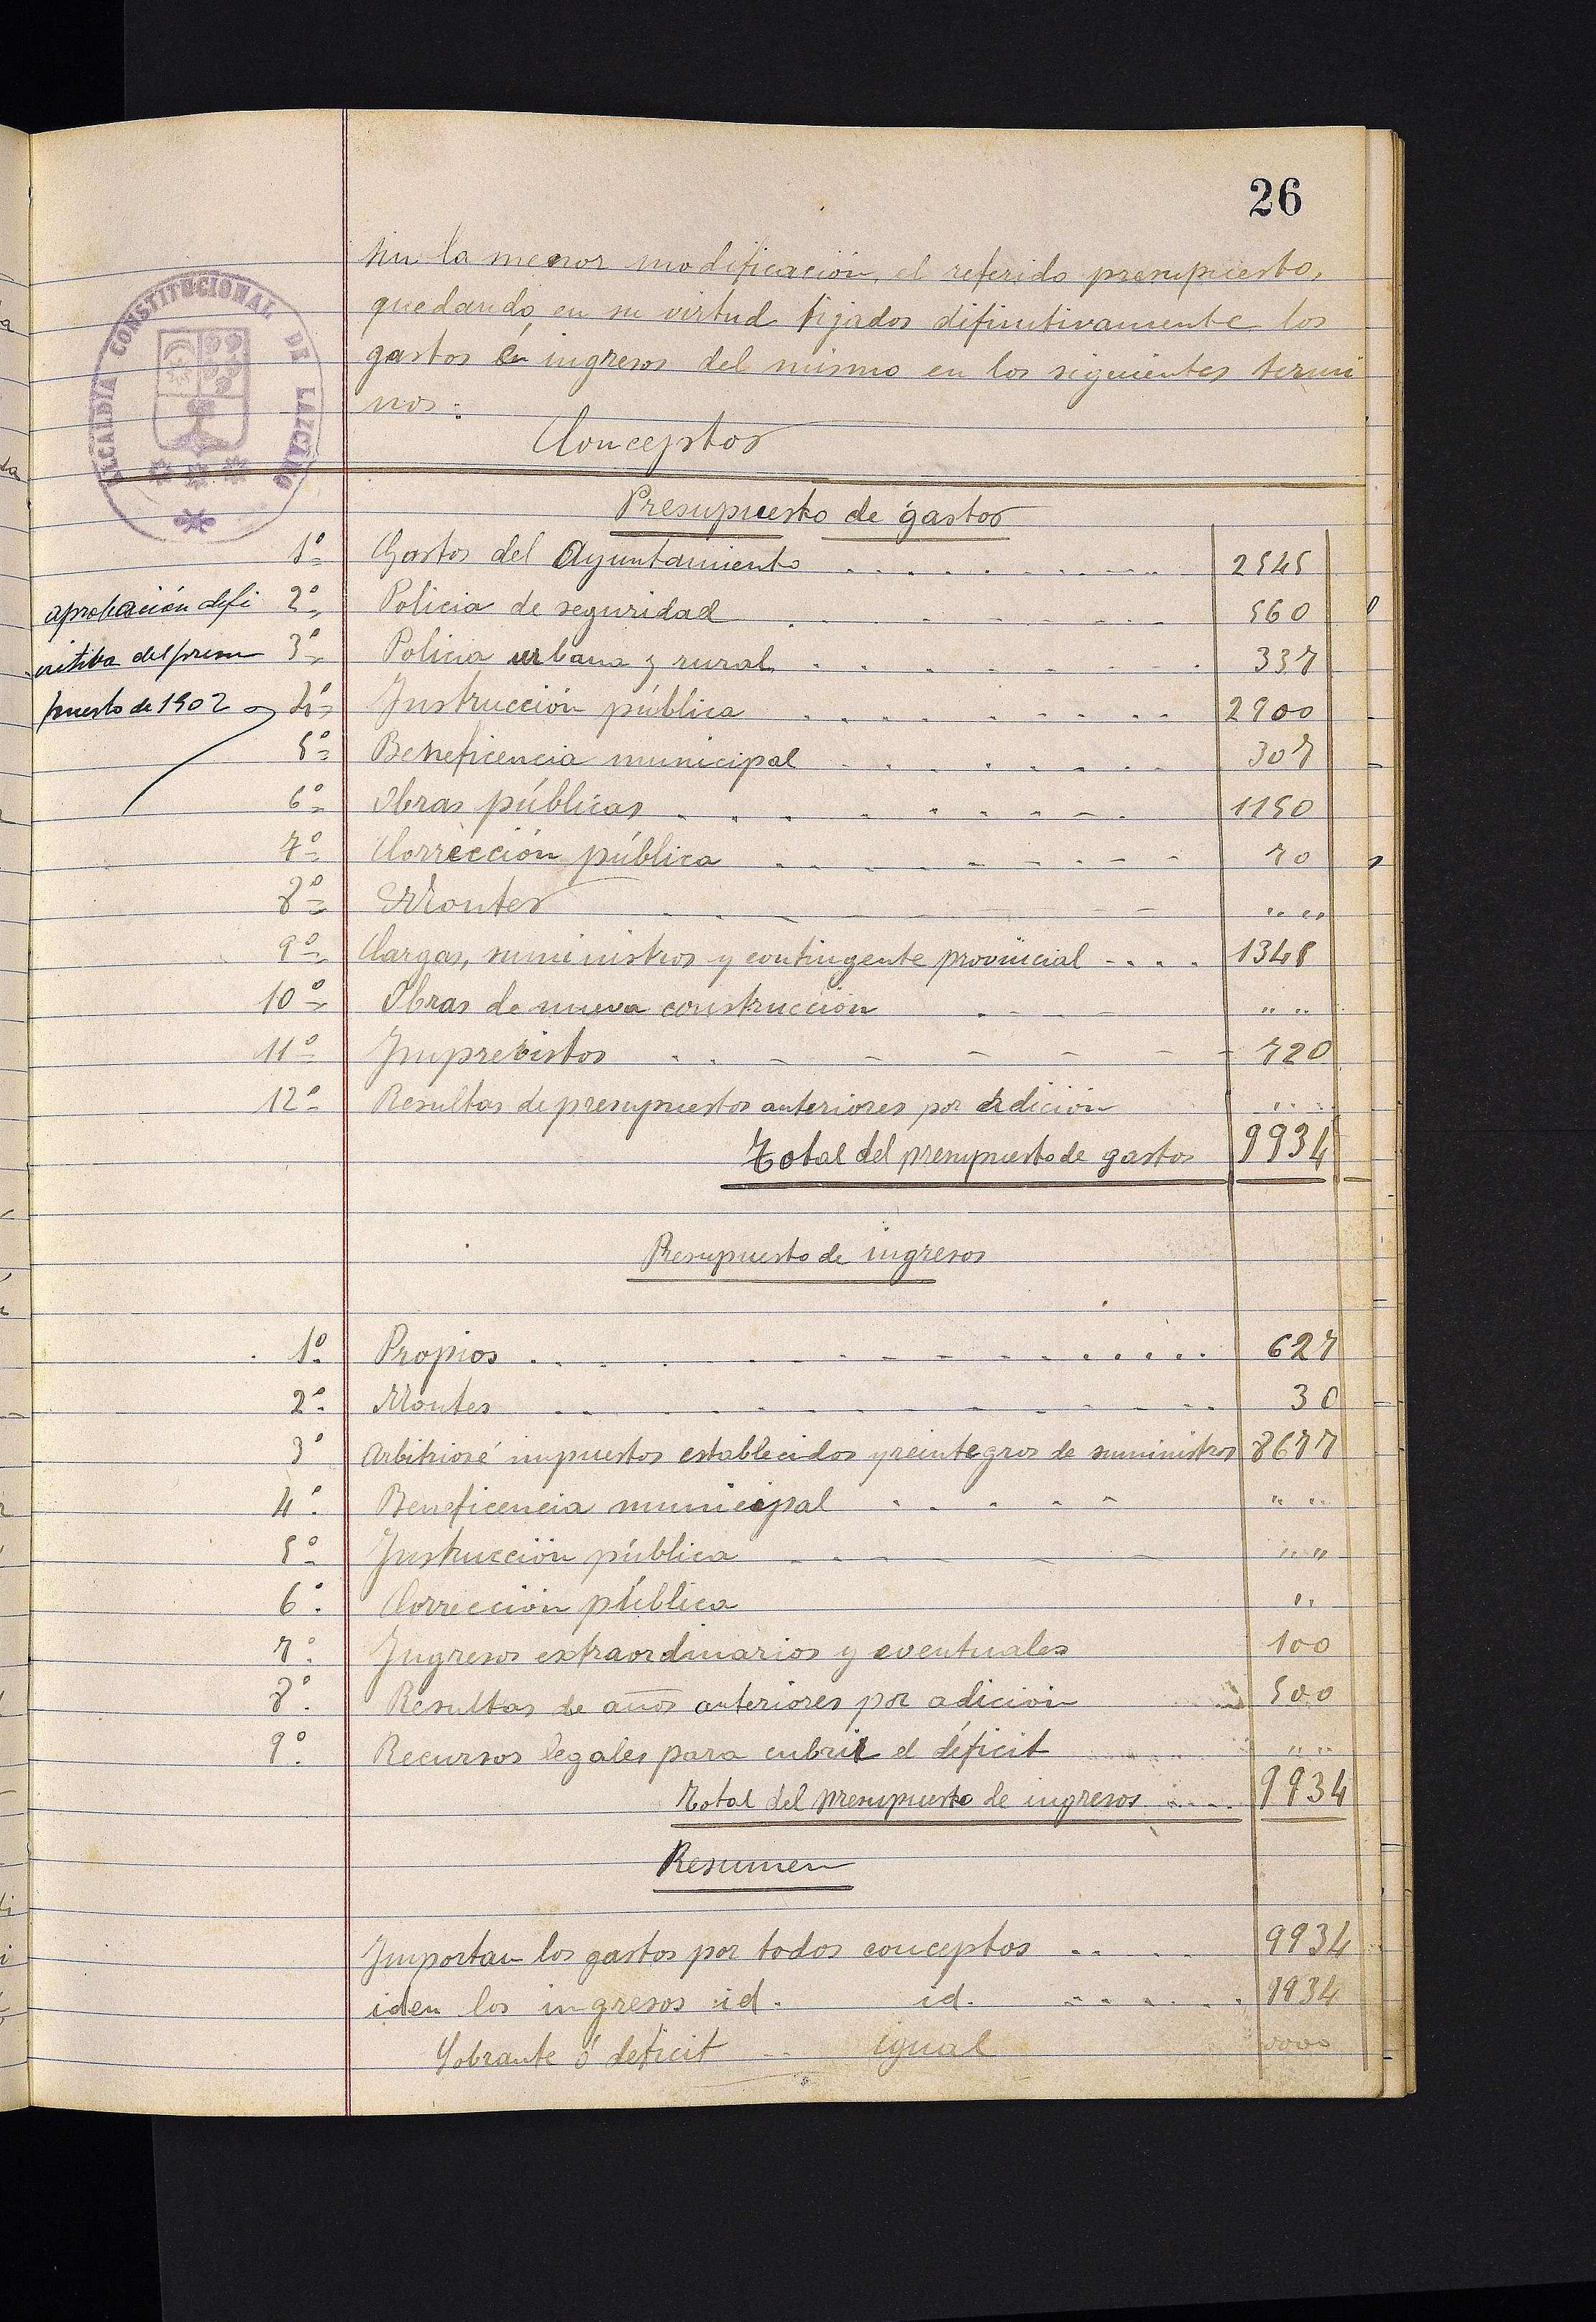 26
sin la menor modificación, el referido presupuesto,
quedando en su virtud fijados difinitivamente los
gastos é ingresos del mismo en los siguientes termi
nos:
ALCALDIA CONSTITUCIONAL DE LAZCANO
Conceptos
Presupuesto de gastos
1º Gastos del Ayuntamiento 2545
2º Policia de seguridad 560
3º Policia urbana y rural 337
4º Instrucción pública 2900
5º Beneficencia municipal 307
6º Obras públicas 1150
7º Corrección pública 70
8º Montes " "
9º Cargas, suministros y contingente provincial 1345
10º Obras de nueva construcción " "
11º Imprevistos 720
12º Resultas de presupuestos anteriores por adición " "
Total del presupuesto de gastos 9934
aprobación defi
nitiva del presu
puesto de 1902
Presupuesto de ingresos
1º Propios 627
2º Montes 30
3º Arbitrios é impuestos establecidos y reintegros de suministros 8677
4º Beneficencia municipal " "
5º Instrucción pública " "
6º Corrección pública "
7º Ingresos extraordinarios y eventuales 100
8º Resultas de años anteriores por adición 500
9º Recursos legales para cubrir el déficit " "
Total del presupuesto de ingresos 9934
Resumen
Importan los gastos por todos conceptos 9934
iden los ingresos id. id. 9934
Sobrante ó deficit igual 0000